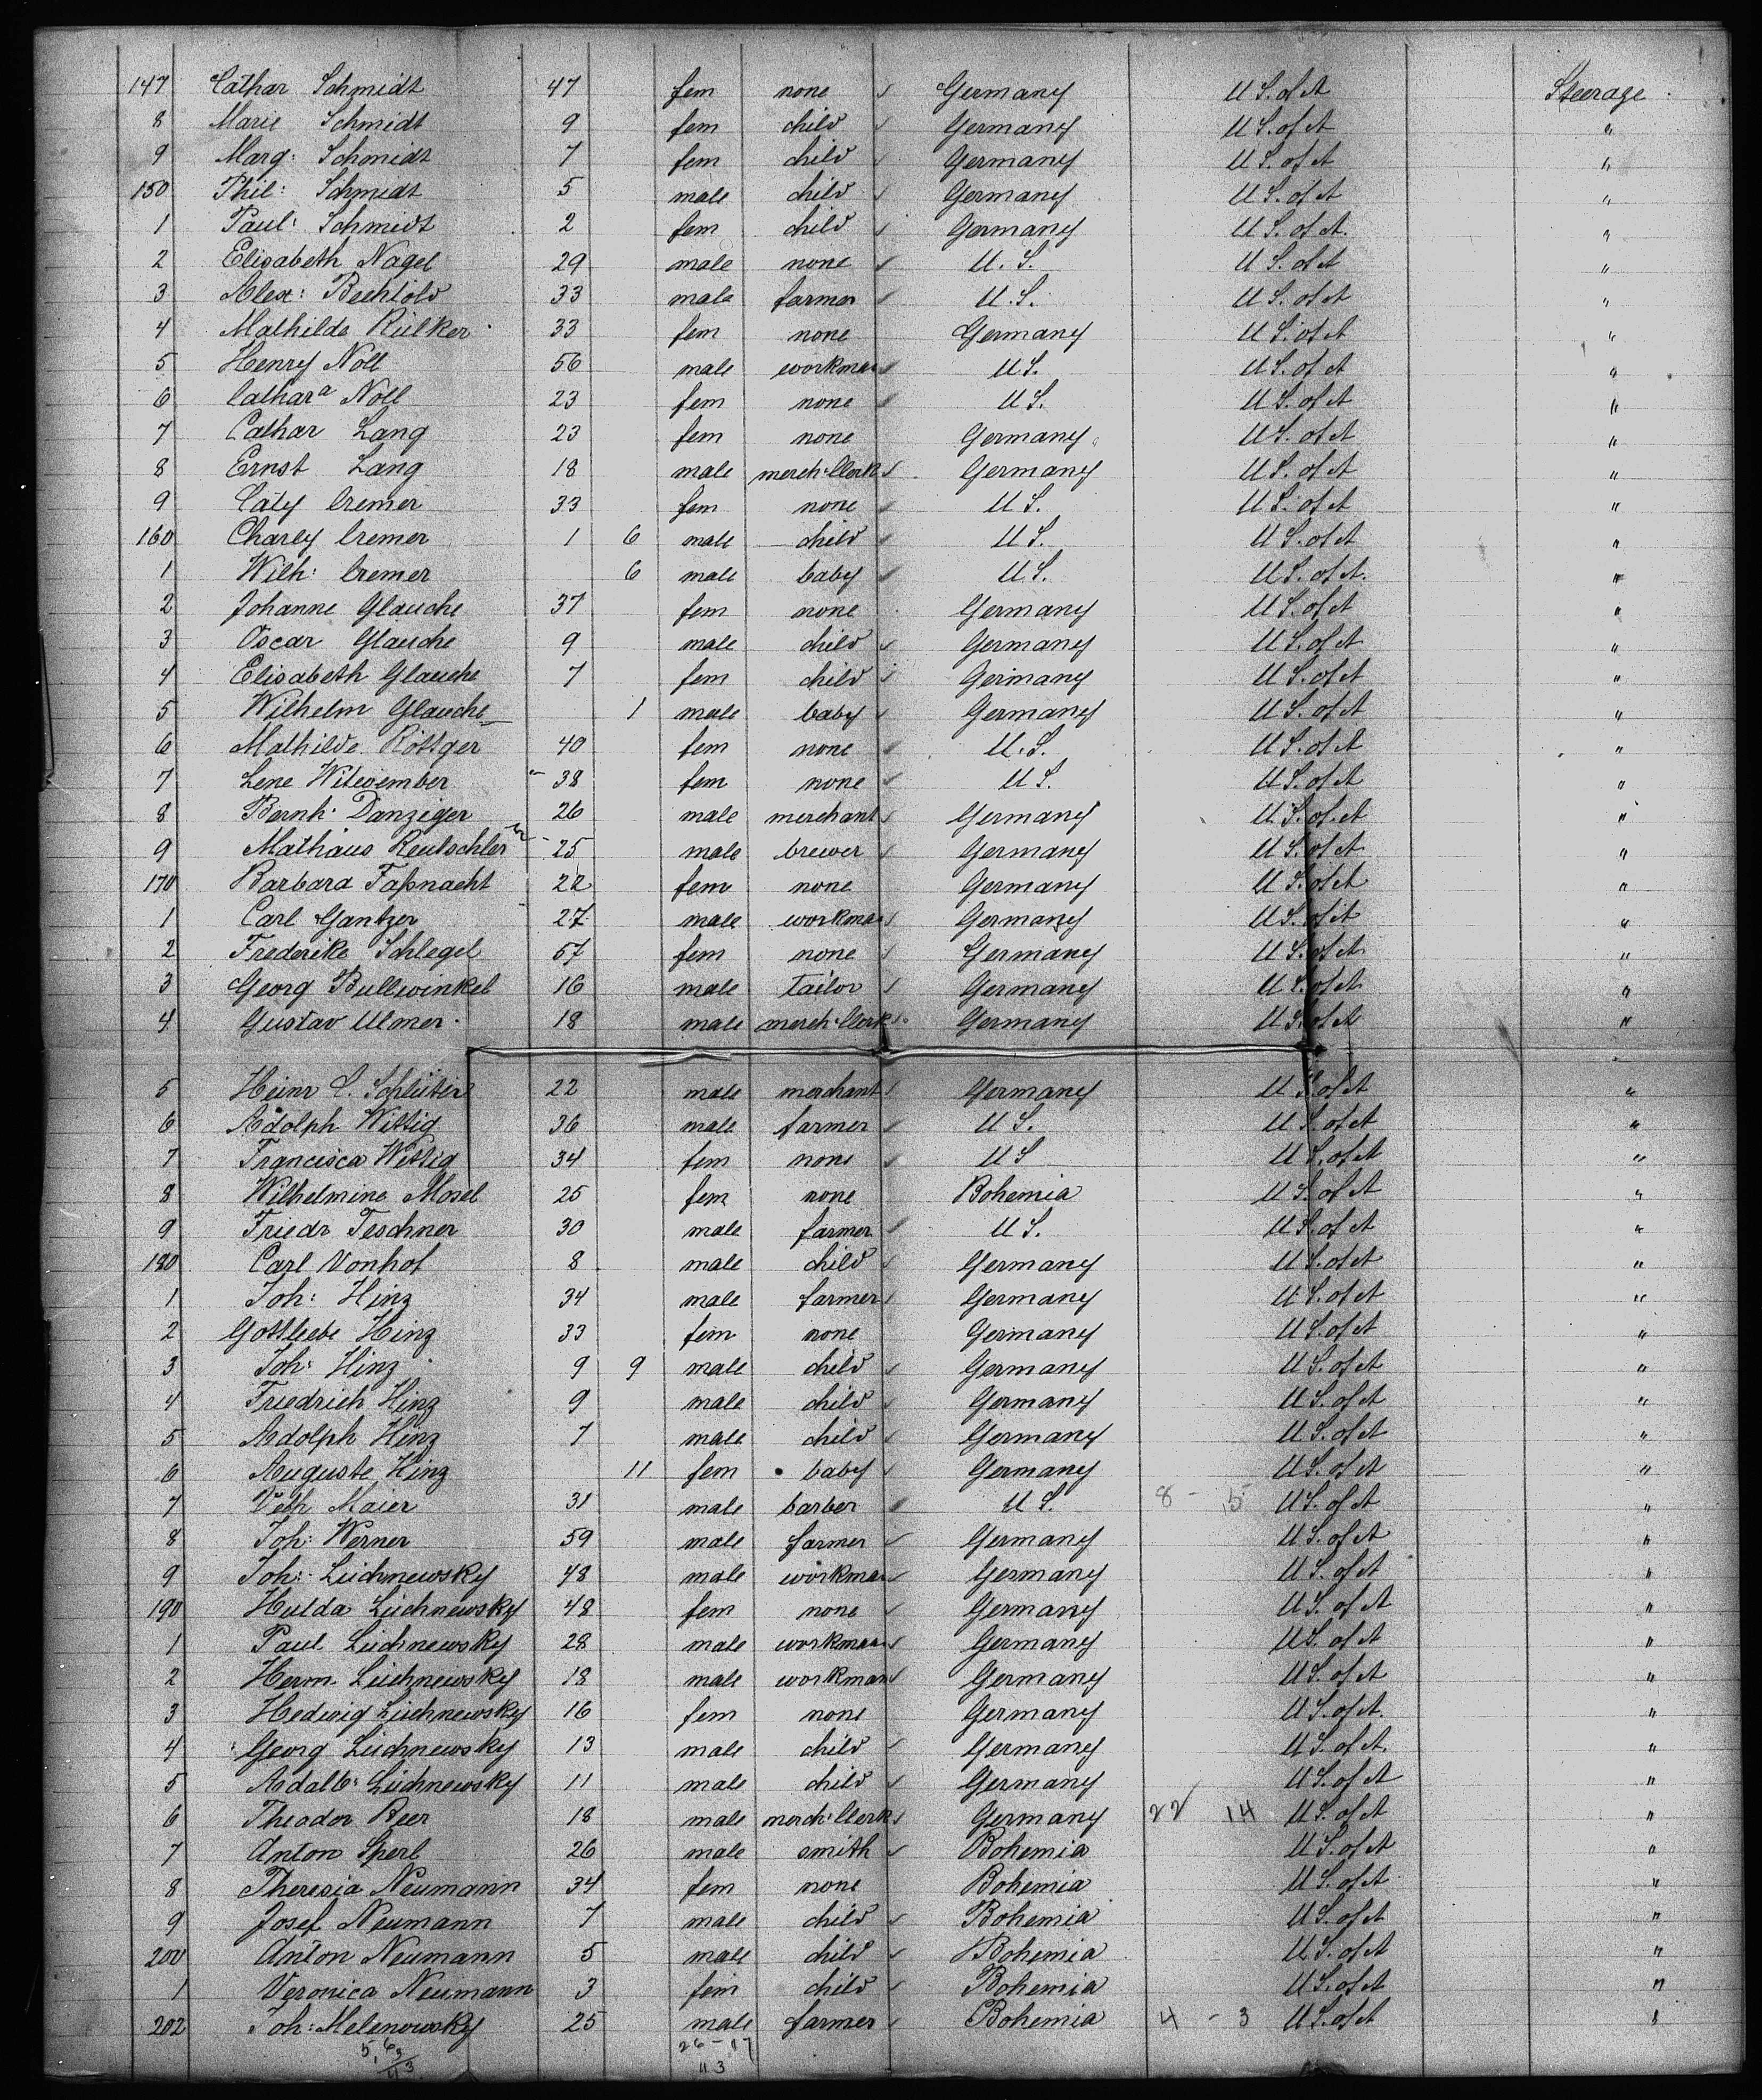 147 Cathar Schmidt 47 fem none Germany U S. of A Steerage
8 Marie Schmidt 9 fem child Germany U S. of A "
9 Marg: Schmidt 7 fem child Germany U S. of A "
150 Phil: Schmidt 5 male child Germany U S. of A "
1 Paul: Schmidt 2 fem child Germany U S. of A. "
2 Elisabeth Nagel 29 male none U. S. U S. of A "
3 Alex: Bechtold 33 male farmer U. S. U S. of A "
4 Mathilde Rülker 33 fem none Germany U S. of A "
5 Henry Noll 56 male workman U S. U S. of A "
6 Cathara Noll 23 fem none U S. U S. of A "
7 Cathar Lang 23 fem none Germany U S. of A "
8 Ernst Lang 18 male merch: Clerk Germany U S. of A "
9 Caty Cremer 33 fem none U S. U S. of A "
160 Charly Cremer 1 6 male child U S. U S. of A "
1 Wilh: Cremer 6 male baby U S. U S. of A. "
2 Johanne Glauche 37 fem none Germany U S. of A "
3 Oscar Glauche 9 male child Germany U S. of A "
4 Elisabeth Glauche 7 fem child Germany U S. of A "
5 Wilhelm Glauche 1 male baby Germany U S. of A "
6 Mathilde Röttger 40 fem none U. S. U S. of A "
7 Lene 38 fem none U S. U S. of A "
8 Bernh: Danziger 26 male merchant Germany U. S. of A "
9 Mathäus Reutschler 25 male brewer Germany U S. of A "
170 Barbara Faßnacht 22 fem none Germany U S. of A "
1 Carl Gantzer 27 male workman Germany U S. of A "
2 Frederike Schlegel 57 fem none Germany U S. of A "
3 Georg Bullwinkel 16 male tailor Germany U S. of A "
4 Gustav Ulmer 18 male merch: Clerk Germany U S. of A "
5 Heinr C. Schlüter 22 male merchant Germany U S. of A "
6 Adolph Wittig 36 male farmer U S. U S. of A "
7 Francisca Wittig 34 fem none U S U S. of A "
8 Wilhelmine Mosel 25 fem none Bohemia U S. of A "
9 Friedr Teschner 30 male farmer U S. U S. of A "
180 Carl Vonhof 8 male child Germany U S. of A "
1 Joh: Hinz 34 male farmer Germany U S. of A "
2 Gottliebe Hinz 33 fem none Germany U S. of A "
3 Joh: Hinz 9 9 male child Germany U S. of A "
4 Friedrich Hinz 9 male child Germany U S. of A "
5 Adolph Hinz 7 male child Germany U S. of A "
6 Auguste Hinz 11 fem baby Germany U S. of A "
7 Veth Maier 31 male barber U S. 8 - 5 U S. of A "
8 Joh: Werner 59 male farmer Germany U S. of A "
9 Joh: Lichnewsky 48 male workman Germany U S. of A "
190 Hulda Lichnewsky 48 fem none Germany U S. of A "
1 Paul Lichnewsky 28 male workman Germany U S. of A "
2 Herm. Lichnewsky 18 male workman Germany U S. of A "
3 Hedwig Lichnewsky 16 fem none Germany U S. of A. "
4 Georg Lichnewsky 13 male child Germany U S. of A. "
5 Adalb: Lichnewsky 11 male child Germany U S. of A "
6 Theodor Beer 18 male merch: Clerk Germany 22 14 U S. of A "
7 Anton Sperl 26 male smith Bohemia U S. of A "
8 Theresia Neumann 34 fem none Bohemia U S. of A "
9 Josef Neumann 7 male child Bohemia U S. of A "
200 Anton Neumann 5 male child Bohemia U S. of A "
1 Veronica Neumann 3 fem child Bohemia U S. of A "
202 Joh: Melenowsky 25 male farmer Bohemia 4 - 3 U S. of A "
26 - 17